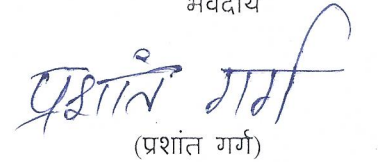 भवदीय
प्रशांत गर्ग
(प्रशांत गर्ग)